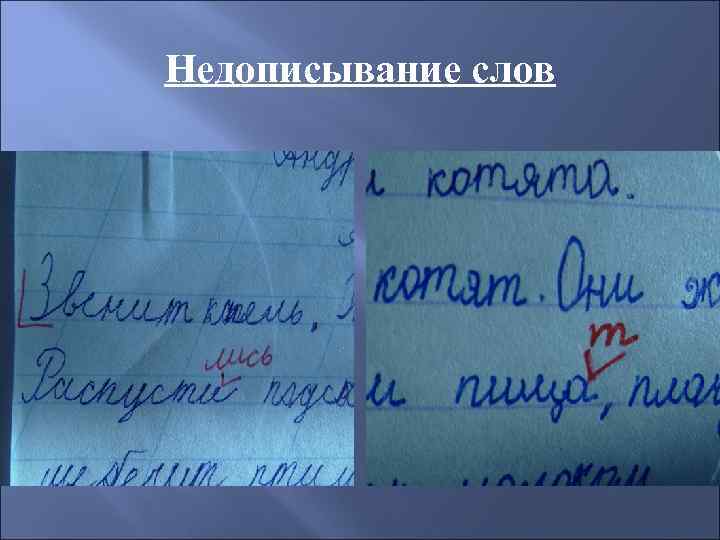 Недописывание слов
Андр
Звенит капель.
лись
Распусти подсн
щебечит пти
и котята.
котят. Они ж
т
и пища, плак
молоком